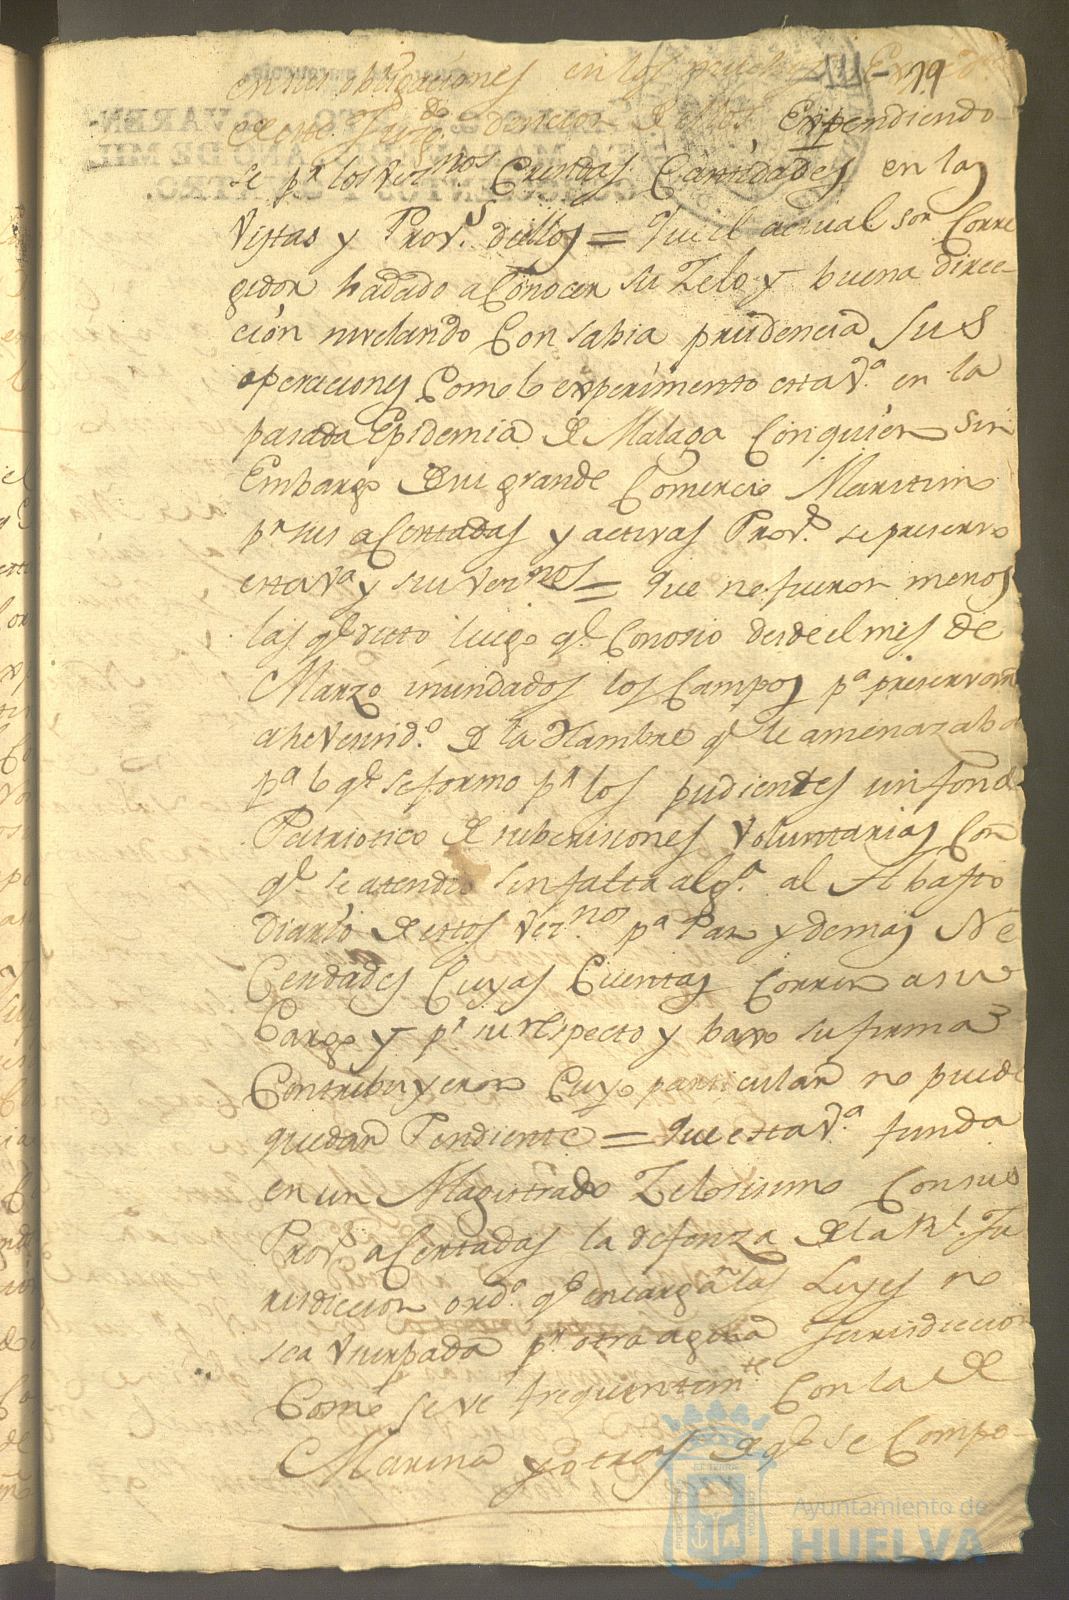 en sus obligaciones en los 19
de este denecion de ellos Expendiendo
se pr. los vez.nos Crecidas Cantidades en las
Vistas y Prov.s dellos = que el actual sor. Corre
gidor ha dado a Conocer su Zelo y buena direc-
ción nivelando Con sabia prudencia sus
operaciones Como lo experimento esta V.a en la
pasada Epidemia de Malaga Con quien sin
Embargo de su grande Comercio Maritimo
pr. sus acertadas y activas Prov.s se preservo
esta V.a y sus vez.nos = Que no fueron menos
las q.e dicto luego q.e Conosio desde el mes de
Marzo inundados los Campos p.a preservar
a he Vecind.o de la Hambre q.e le amenazaba
p.a lo q.e se formo pr. los pudientes un fondo
Patriotico de subcrisiones Voluntarias Con
q.e se atendio sin falta alg.a al Abasto
diario de estos Vez.nos p.a Pan y demas Ne
Cendades Cuyas Cuentas Corren a su
Cargo y pr. su respecto y bajo su firma
Contribuyeron Cuyo particular no puede
quedar Pendiente = Que esta V.a funda
en un Magistrado Zelosisimo Con sus
Prov.s acertadas la defenza de la Rl. Ju
risdiccion ord.a q.e encargan las Leyes no
sea Vsurpada pr. otra agena Jurisdiccion
Como se ve frequentem.te Con la de
Marina y otras de q.e se Compo-
Ayuntamiento de
HUELVA